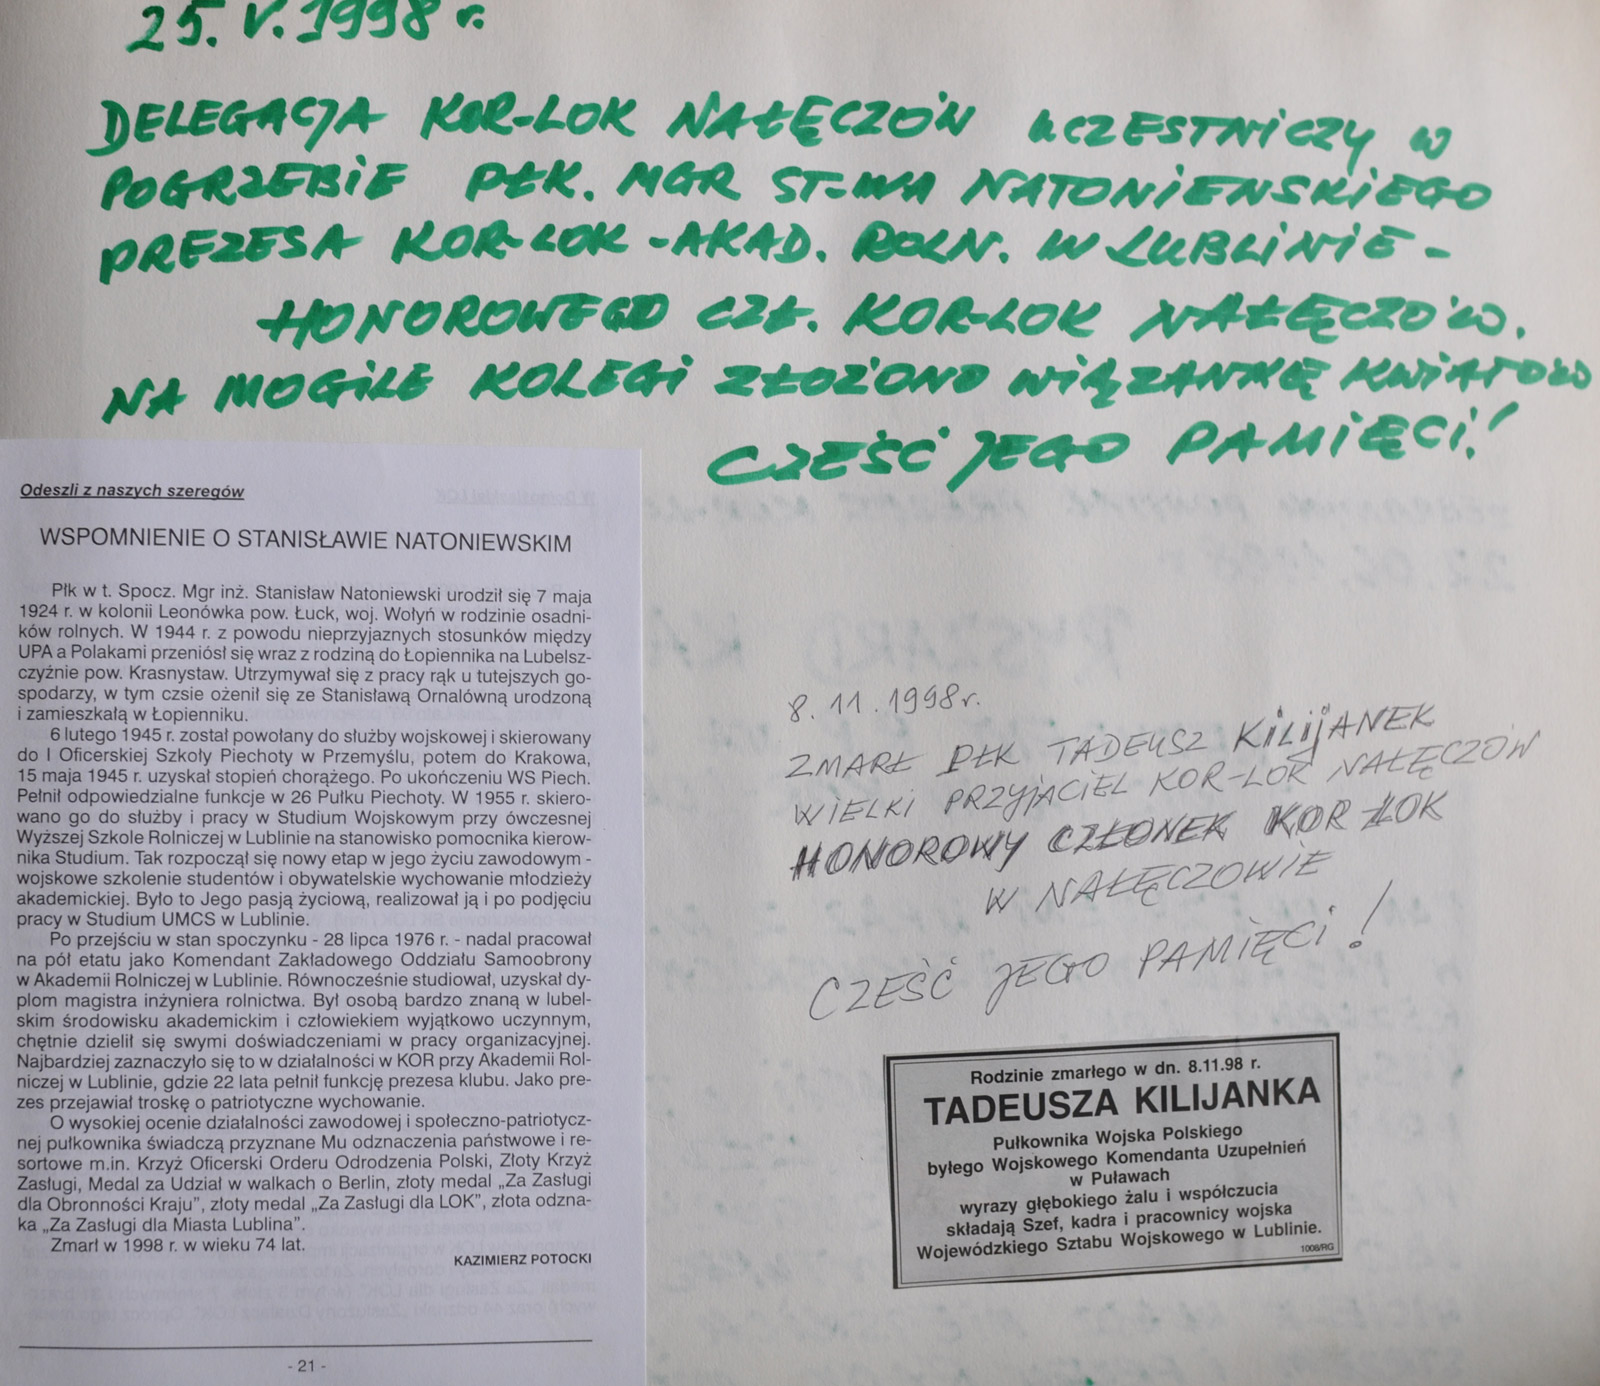 25.V.1998 r.
DELEGACJA KOR-LOK NAŁĘCZÓW UCZESTNICZY W
POGRZEBIE PŁK. MGR ST-WA NATONIENSKIEGO
PREZESA KOR-LOK - AKAD. ROLN. W LUBLINIE -
HONOROWEGO CZŁ. KOR-LOK NAŁĘCZÓW.
NA MOGILE KOLEGI ZŁOŻONO WIĄZANKĘ KWIATÓW
CZEŚĆ JEGO PAMIĘCI!
Odeszli z naszych szeregów
WSPOMNIENIE O STANISŁAWIE NATONIEWSKIM
Płk w t. Spocz. Mgr inż. Stanisław Natoniewski urodził się 7 maja
1924 r. w kolonii Leonówka pow. Łuck, woj. Wołyń w rodzinie osadni-
ków rolnych. W 1944 r. z powodu nieprzyjaznych stosunków między
UPA a Polakami przeniósł się wraz z rodziną do Łopiennika na Lubelsz-
czyźnie pow. Krasnystaw. Utrzymywał się z pracy rąk u tutejszych go-
spodarzy, w tym czsie ożenił się ze Stanisławą Ornalówną urodzoną
i zamieszkałą w Łopienniku.
6 lutego 1945 r. został powołany do służby wojskowej i skierowany
do I Oficerskiej Szkoły Piechoty w Przemyślu, potem do Krakowa,
15 maja 1945 r. uzyskał stopień chorążego. Po ukończeniu WS Piech.
Pełnił odpowiedzialne funkcje w 26 Pułku Piechoty. W 1955 r. skiero-
wano go do służby i pracy w Studium Wojskowym przy ówczesnej
Wyższej Szkole Rolniczej w Lublinie na stanowisko pomocnika kierow-
nika Studium. Tak rozpoczął się nowy etap w jego życiu zawodowym -
wojskowe szkolenie studentów i obywatelskie wychowanie młodzieży
akademickiej. Było to Jego pasją życiową, realizował ją i po podjęciu
pracy w Studium UMCS w Lublinie.
Po przejściu w stan spoczynku - 28 lipca 1976 r. - nadal pracował
na pół etatu jako Komendant Zakładowego Oddziału Samoobrony
w Akademii Rolniczej w Lublinie. Równocześnie studiował, uzyskał dy-
plom magistra inżyniera rolnictwa. Był osobą bardzo znaną w lubel-
skim środowisku akademickim i człowiekiem wyjątkowo uczynnym,
chętnie dzielił się swymi doświadczeniami w pracy organizacyjnej.
Najbardziej zaznaczyło się to w działalności w KOR przy Akademii Rol-
niczej w Lublinie, gdzie 22 lata pełnił funkcję prezesa klubu. Jako pre-
zes przejawiał troskę o patriotyczne wychowanie.
O wysokiej ocenie działalności zawodowej i społeczno-patriotycz-
nej pułkownika świadczą przyznane Mu odznaczenia państwowe i re-
sortowe m.in. Krzyż Oficerski Orderu Odrodzenia Polski, Złoty Krzyż
Zasługi, Medal za Udział w walkach o Berlin, złoty medal „Za Zasługi
dla Obronności Kraju”, złoty medal „Za Zasługi dla LOK”, złota odzna-
ka „Za Zasługi dla Miasta Lublina”.
Zmarł w 1998 r. w wieku 74 lat.
KAZIMIERZ POTOCKI
- 21 -
8.11.1998r.
ZMARŁ PŁK TADEUSZ KILIJANEK
WIELKI PRZYJACIEL KOR-LOK NAŁĘCZÓW
HONOROWY CZŁONEK KOR LOK
W NAŁĘCZOWIE
CZEŚĆ JEGO PAMIĘCI!
Rodzinie zmarłego w dn. 8.11.98 r.
TADEUSZA KILIJANKA
Pułkownika Wojska Polskiego
byłego Wojskowego Komendanta Uzupełnień
w Puławach
wyrazy głębokiego żalu i współczucia
składają Szef, kadra i pracownicy wojska
Wojewódzkiego Sztabu Wojskowego w Lublinie.
1008/RG